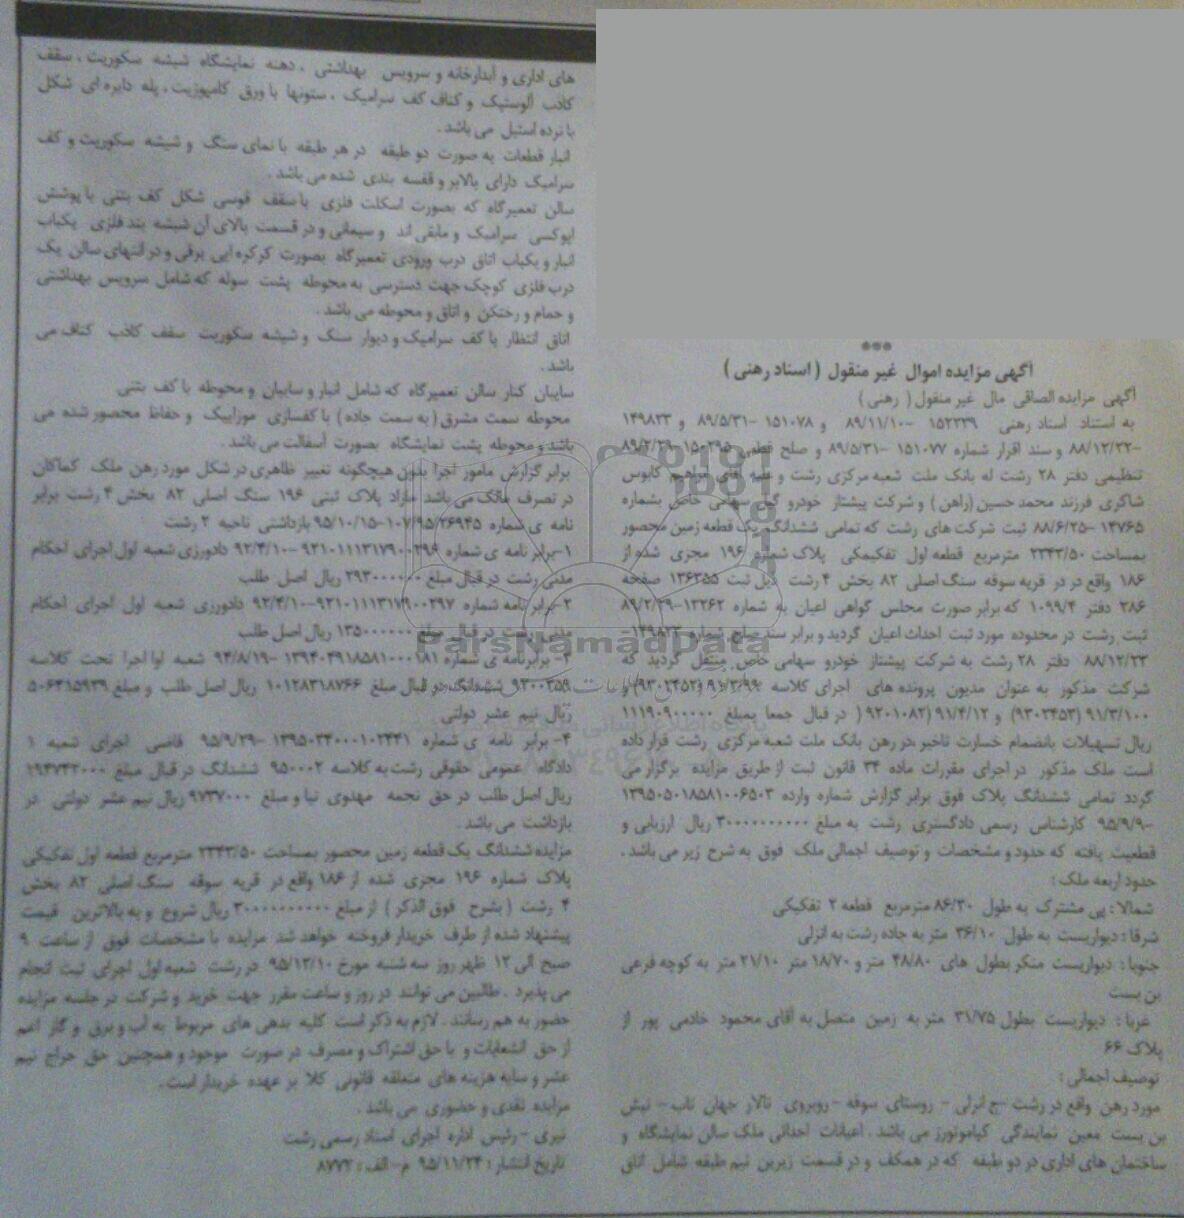 ***
آگهی مزایده اموال غیر منقول ( اسناد رهنی )
آگهی مزایده الصاقی مال غیر منقول ( رهنی )
به استناد اسناد رهنی ۱۵۲۲۳۹ -۸۹/۱۱/۱۰ و ۱۵۱۰۷۸ -۸۹/۵/۳۱ و ۱۴۹۸۲۳
-۸۸/۱۲/۲۲ و سند اقرار شماره ۱۵۱۰۷۷ -۸۹/۵/۳۱ و صلح قطعی
تنظیمی دفتر ۲۸ رشت له بانک ملت شعبه مرکزی رشت و علیه
شاکری فرزند محمد حسین (راهن ) و شرکت پیشتاز خودرو گیل سهامی خاص بشماره
۱۴۷۶۵ -۸۸/۶/۲۵ ثبت شرکت های رشت که تمامی ششدانگ یک قطعه زمین محصور
بمساحت ۲۳۴۳/۵۰ مترمربع قطعه اول تفکیکی پلاک شماره ۱۹۶ مجزی شده از
۱۸۶ واقع در در قریه سوقه سنگ اصلی ۸۲ بخش ۴ رشت ذیل ثبت ۱۳۶۳۵۵ صفحه
۲۸۶ دفتر ۱۰۹۹/۴ که برابر صورت مجلس گواهی اعیان به شماره ۱۳۲۶۲-۸۹/۲/۲۹
ثبت رشت در محدوده مورد ثبت احداث اعیان گردید و برابر سند صلح شماره ۱۴۹۸۲۲
۸۸/۱۲/۲۲ دفتر ۲۸ رشت به شرکت پیشتاز خودرو سهامی خاص منتقل گردید که
شرکت مذکور به عنوان مدیون پرونده های اجرای کلاسه
۹۱/۳/۱۰۰ (۹۳۰۲۴۵۳) و ۹۱/۴/۱۲ (۹۲۰۱۰۸۲ ( در قبال جمعا بمبلغ ۱۱۱۹۰۹۰۰۰۰۰
ریال تسهیلات بانضمام خسارت تاخیر ،در رهن بانک ملت شعبه مرکزی رشت قرار داده
است ملک مذکور در اجرای مقررات ماده ۳۴ قانون ثبت از طریق مزایده برگزار می
گردد تمامی ششدانگ پلاک فوق برابر گزارش شماره وارده ۱۳۹۵۰۵۰۱۸۵۸۱۰۰۶۵۰۳
-۹۵/۹/۹ کارشناس رسمی دادگستری رشت به مبلغ ۳۰۰۰۰۰۰۰۰۰۰ ریال ارزیابی و
قطعیت یافته که حدود و مشخصات و توصیف اجمالی ملک فوق به شرح زیر می باشد .
حدود اربعه ملک :
شمالا : پی مشترک به طول ۸۶/۳۰ مترمربع قطعه ۲ تفکیکی
شرقا : دیواریست به طول ۳۶/۱۰ متر به جاده رشت به انزلی
جنوبا : دیواریست منکر بطول های ۴۸/۸۰ متر و ۱۸/۷۰ متر ۲۱/۱۰ متر به کوچه فرعی
بن بست
غربا : دیواریست بطول ۳۱/۷۵ متر به زمین متصل به آقای محمود خادمی پور از
پلاک ۶۶
توصیف اجمالی :
مورد رهن واقع در رشت -ج انزلی - روستای سوقه -روبروی تالار جهان تاب - نبش
بن بست معین نمایندگی کیاموتورز می باشد . اعیانات احداثی ملک سالن نمایشگاه و
ساختمان های اداری در دو طبقه که در همکف و در قسمت زیرین نیم طبقه شامل اتاق
های اداری و آبدارخانه و سرویس بهداشتی . دهنه نمایشگاه شیشه سکوریت ، سقف
کاذب آلوستیک و کناف کف سرامیک ، ستونها با ورق کامپوزیت ، پله دایره ای شکل
با نرده استیل می باشد .
انبار قطعات به صورت دو طبقه در هر طبقه با نمای سنگ و شیشه سکوریت و کف
سرامیک دارای بالابر و قفسه بندی شده می باشد .
سالن تعمیرگاه که بصورت اسکلت فلزی با سقف قوسی شکل کف بتنی با پوشش
اپوکسی سرامیک و مابقی اند و سیمانی و در قسمت بالای آن شیشه بند فلزی یکباب
انبار و یکباب اتاق درب ورودی تعمیرگاه بصورت کرکره ایی برقی و در انتهای سالن یک
درب فلزی کوچک جهت دسترسی به محوطه پشت سوله که شامل سرویس بهداشتی
و حمام و رختکن و اتاق و محوطه می باشد .
اتاق انتظار با کف سرامیک و دیوار سنگ و شیشه سکوریت سقف کاذب کناف می
باشد .
سایبان کنار سالن تعمیرگاه که شامل انبار و سایبان و محوطه با کف بتنی
محوطه سمت مشرق ( به سمت جاده ) با کفسازی موزاییک و حفاظ محصور شده می
باشد و محوطه پشت نمایشگاه بصورت آسفالت می باشد .
برابر گزارش مامور اجرا بدون هیچگونه تغییر ظاهری در شکل مورد رهن ملک کماکان
در تصرف مالک می باشد مازاد پلاک ثبتی ۱۹۶ سنگ اصلی ۸۲ بخش ۴ رشت برابر
نامه ی شماره ۱۰۷/۹۵/۲۶۹۴۵-۹۵/۱۰/۱۵ بازداشتی ناحیه ۲ رشت
۱-برابر نامه ی شماره ۹۲۱۰۱۱۱۳۱۷۹۰۰۲۹۶ -۹۲/۴/۱۰ دادورزی شعبه اول اجرای احکام
مدنی رشت در قبال مبلغ ۳۹۳۰۰۰۰۰۰ ریال اصل طلب
۲-برابر نامه شماره ۹۲۱۰۱۱۱۳۱۷۹۰۰۲۹۷-۹۲/۴/۱۰ دادورزی شعبه اول اجرای احکام
مدنی رشت در قبال مبلغ ۱۳۵۰۰۰۰۰۰۰ ریال اصل طلب
۳- برابرنامه ی شماره ۱۳۹۴۰۴۹۱۸۵۸۱۰۰۰۱۸۱ -۹۴/۸/۱۹ شعبه اوا اجرا تحت کلاسه
۹۳۰۰۳۵۹ ششدانگ در قبال مبلغ ۱۰۱۲۸۳۱۸۷۶۶ ریال اصل طلب و مبلغ ۵۰۶۴۱۵۹۳۹
ریال نیم عشر دولتی
۴- برابر نامه ی شماره ۱۳۹۵۰۳۴۰۰۰۱۰۲۴۴۱ -۹۵/۹/۲۹ قاضی اجرای شعبه ۱
دادگاه عمومی حقوقی رشت به کلاسه ۹۵۰۰۰۲ ششدانگ در قبال مبلغ ۱۹۴۷۴۲۰۰۰
ریال اصل طلب در حق نجمه مهدوی نیا و مبلغ ۹۷۳۷۰۰۰ ریال نیم عشر دولتی در
بازداشت می باشد .
مزایده ششدانگ یک قطعه زمین محصور بمساحت ۲۳۴۳/۵۰ مترمربع قطعه اول تفکیکی
پلاک شماره ۱۹۶ مجزی شده از ۱۸۶ واقع در قریه سوقه سنگ اصلی ۸۲ بخش
۴ رشت ( بشرح فوق الذکر ) از مبلغ ۳۰۰۰۰۰۰۰۰۰۰ ریال شروع و به بالاترین قیمت
پیشنهاد شده از طرف خریدار فروخته خواهد شد مزایده با مشخصات فوق از ساعت ۹
صبح الی ۱۲ ظهر روز سه شنبه مورخ ۹۵/۱۲/۱۰ در رشت شعبه اول اجرای ثبت انجام
می پذیرد . طالبین می توانند در روز و ساعت مقرر جهت خرید و شرکت در جلسه مزایده
حضور به هم رسانند . لازم به ذکر است کلیه بدهی های مربوط به آب و برق و گاز اعم
از حق انشعابات و یا حق اشتراک و مصرف در صورت موجود و همچنین حق حراج نیم
عشر و سایه هزینه های متعلقه قانونی کلا بر عهده خریدار است .
مزایده نقدی و حضوری می باشد .
نیری - رئیس اداره اجرای اسناد رسمی رشت
تاریخ انتشار : ۹۵/۱۱/۲۴ م- الف : ۸۷۷۳
ParsNamadData